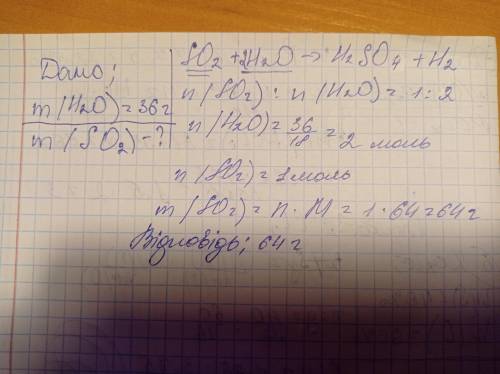 Дано;
m(H₂O)=36г
m(SO₂)-?
SO₂+2H₂O→H₂SO₄+H₂
n(SO₂):n(H₂O)=1:2
n(H₂O)=36/18=2 моль
n(SO₂)=1моль
m(SO₂)=n·M=1·64=64г
Відповідь; 64г